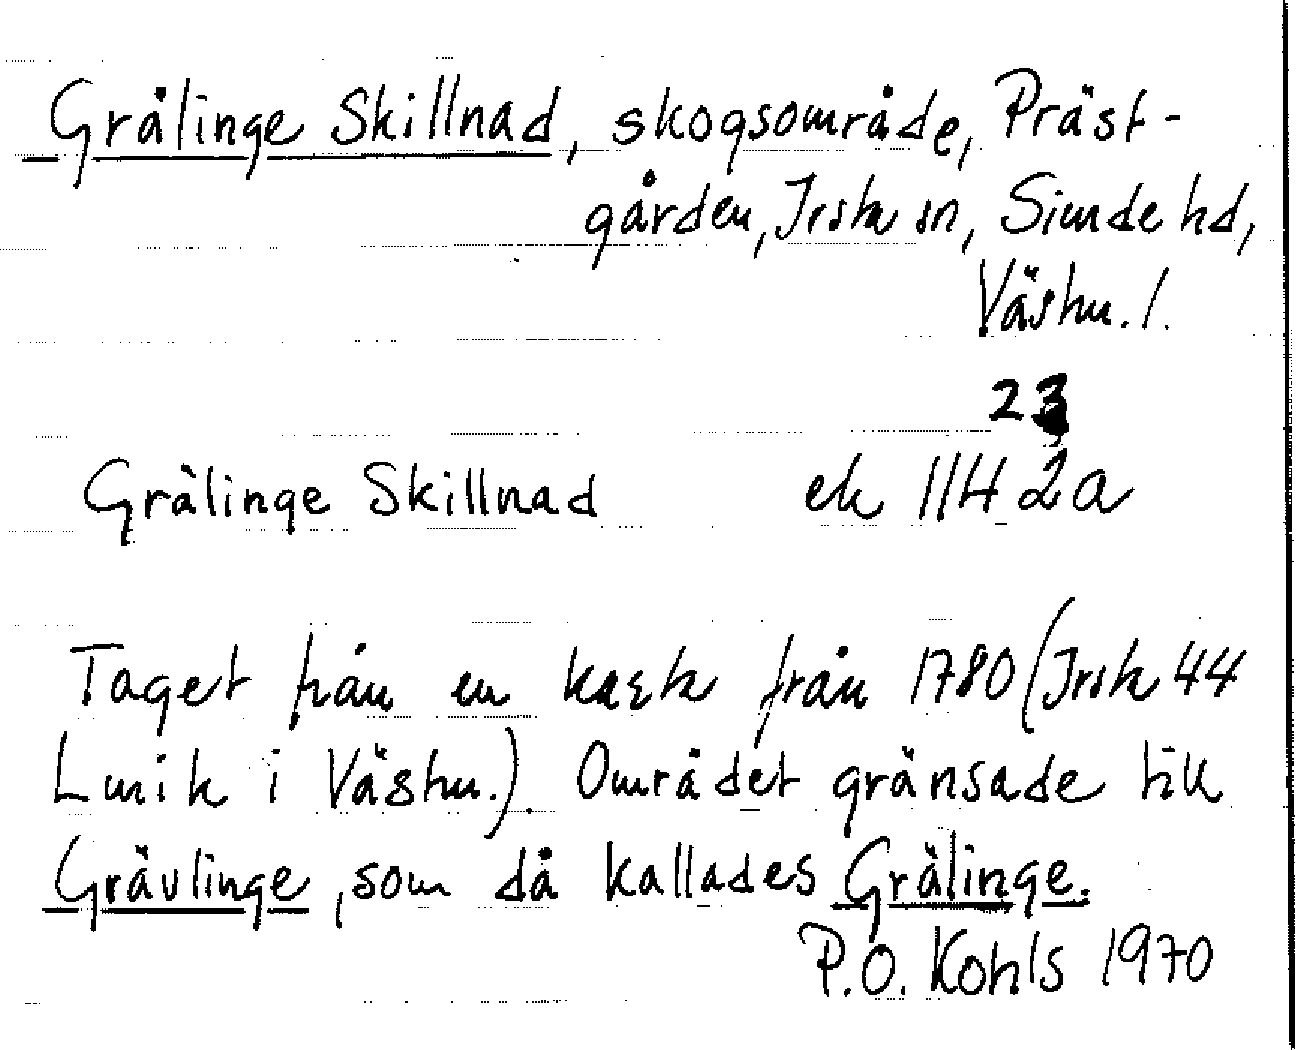 Grålinge Skillnad, skogsområde, Präst-
gården, Irsta sn, Siende hd,
Västm. l.
23
Grälinge Skillnad ek 1142a
Taget från en karta från 1780 (Irsta 44
Lmk i Västm.). Området gränsade till
Grävlinge, som då kallades Grälinge.
P.O. Kohls 1970